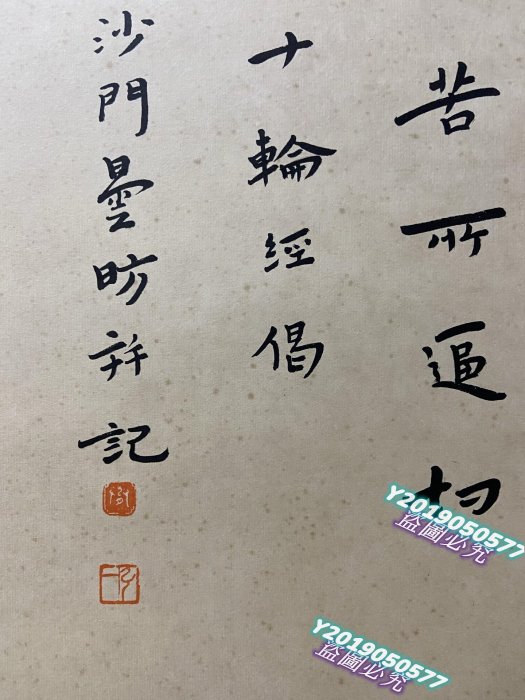 苦所逼切
十輪經偈
沙門曇昉并記
Y2019050577
盜圖必究
Y2019050577
盜圖必究